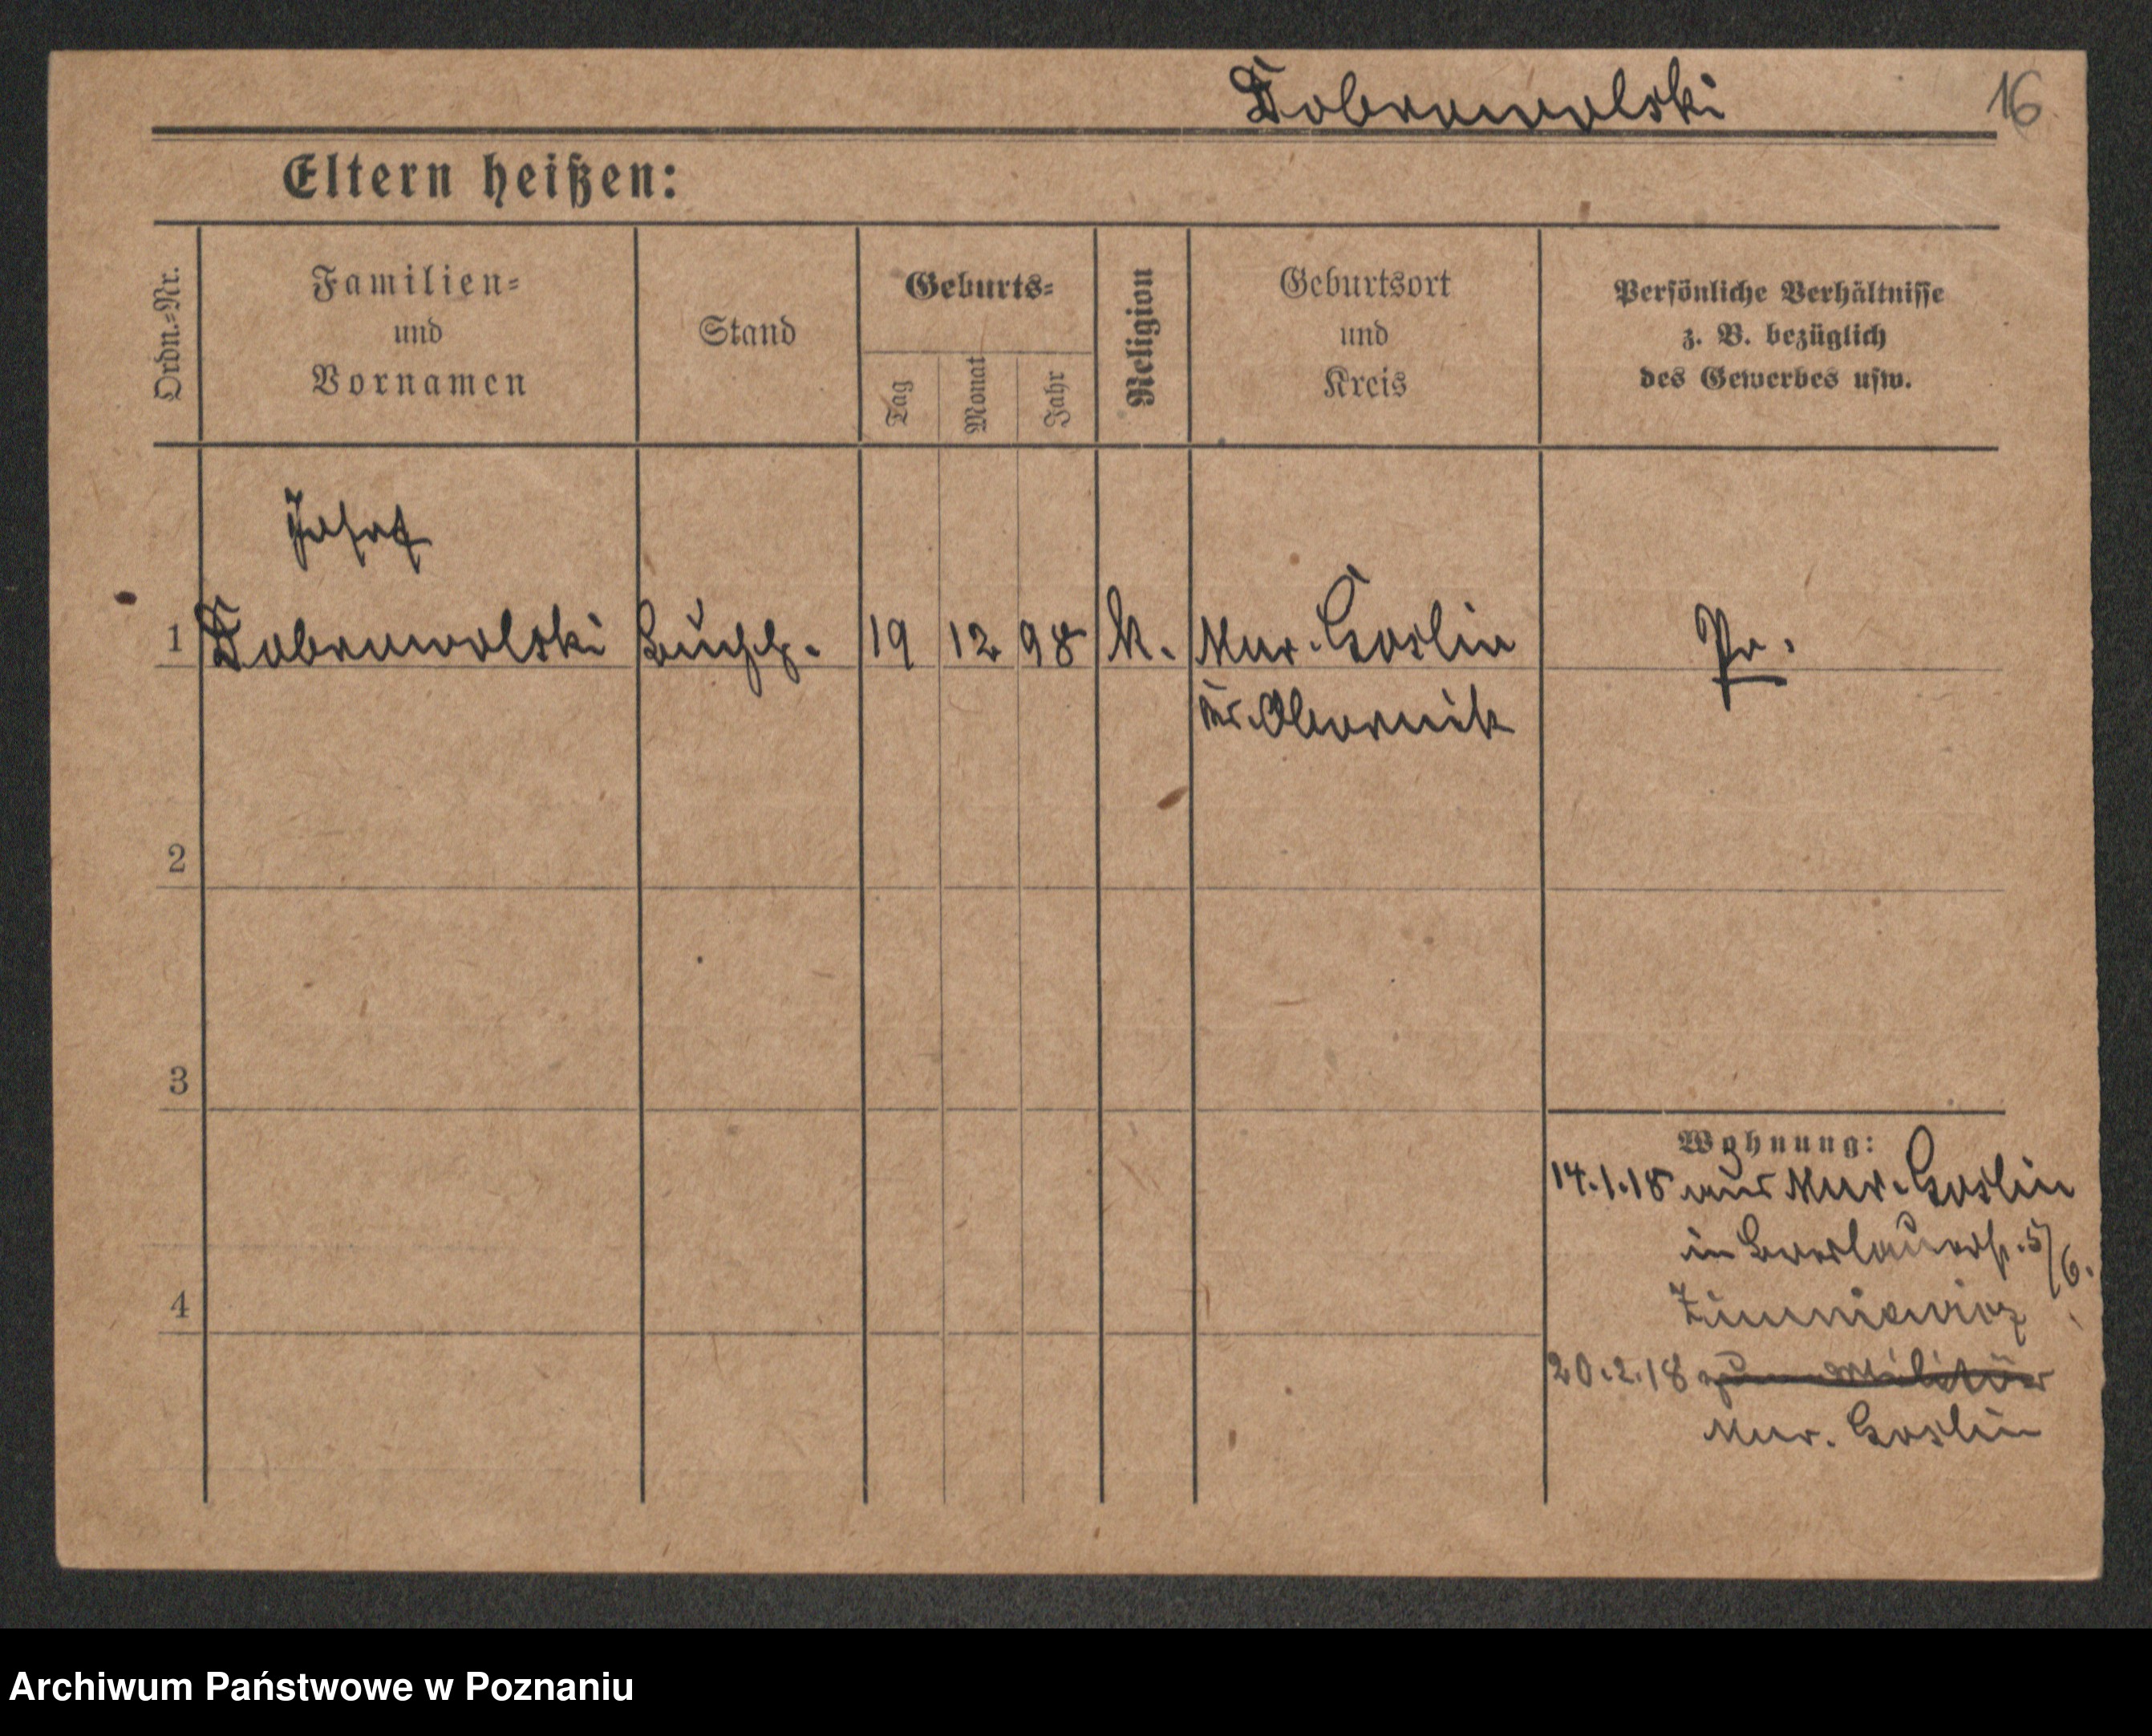 Dobrowolski 16
Eltern heißen:
Ordn.=Nr.
Familien=
und
Vornamen
Stand
Geburts=
Tag
Monat
Jahr
Religion
Geburtsort
und
Kreis
Persönliche Verhältnisse
z. B. bezüglich
des Gewerbes usw.
Josef
1 Dobrowolski Buchh. 19 12 98 k. Mur. Goslin Pr.
Kr. Obornik
2
3
Wohnung:
14.1.18 aus Mur. Goslin
in Breslauerstr. 5/6.
4
20.2.18 zum Militär
Mur. Goslin
Archiwum Państwowe w Poznaniu